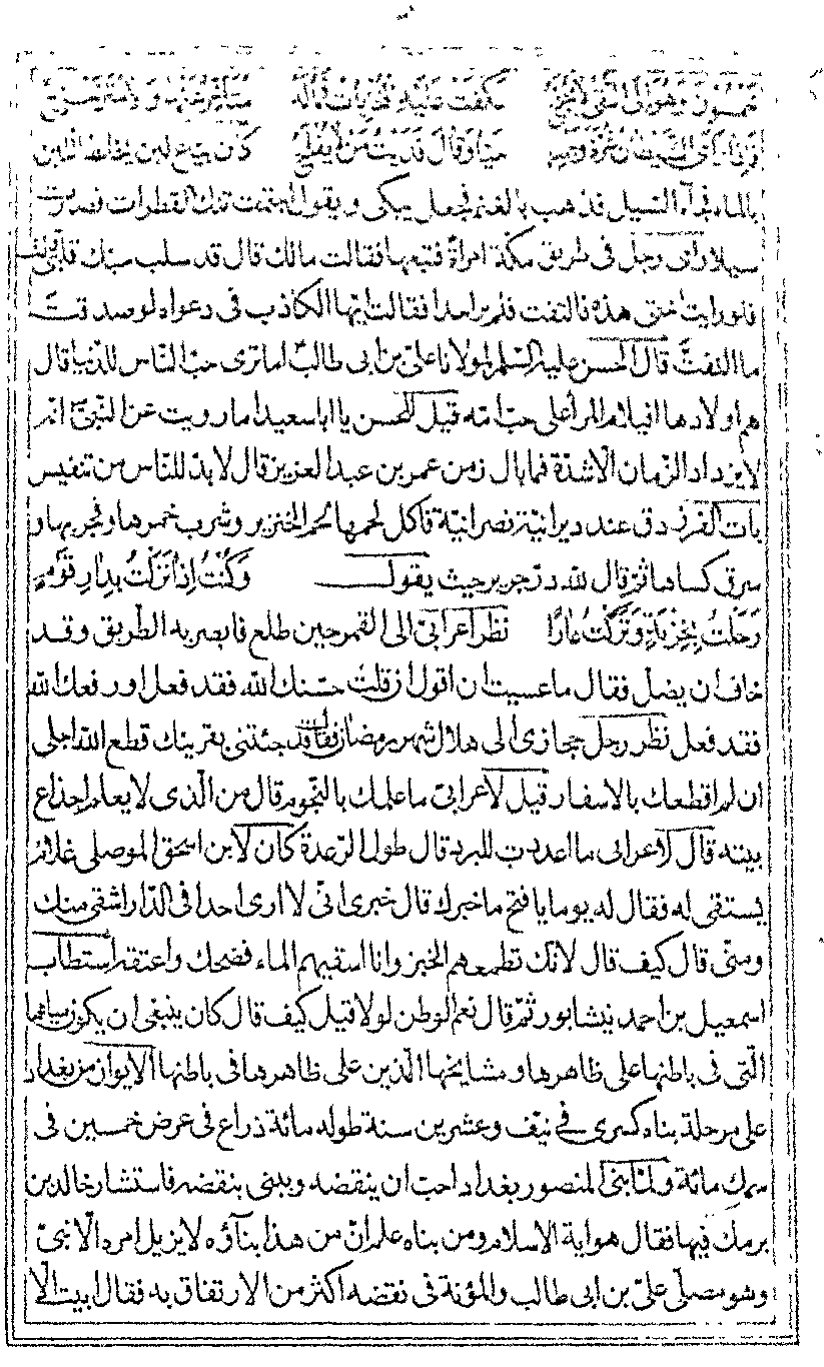 بالماء فجآء السيل فذهب بالغنم فجعل يبكى ويقول اجتمعت تلك القطرات فصرت
سيلا رأى رجل فى طريق مكة امرأة فتبعها فقالت مالك قال قد سلب حبك قلبى
فلو رأيت اختى هذه فالتفت فلم ير احدا فقالت ايها الكاذب فى دعواه لو صدقت
ما التفت قال الحسن عليه السلم لمولانا على بن ابى طالب اما ترى حب الناس للدنيا قال
هم اولادها افيلام المرأ على حب امه قيل للحسن يا ابا سعيد اما رويت عن النبى انه
لا يزداد الزمان الا شدة فما بال زمن عمر بن عبد العزيز قال لا بد للناس من تنفيس
بات الفرزدق عند ديرانية نصرانية فاكل لحمها لحم الخنزير وشرب خمرها وفجر بها و
سرق كساها ثم قال لله در جرير حيث يقول وَكُنْتُ اِذَا نَزَلْتُ بِدَارِ قَوْمٍ
رَحَلْتُ بِخِزْيَةٍ وَتَرَكْتُ عَارًا نظر اعرابى الى القمر حين طلع فابصر به الطريق وقد
خاف ان يضل فقال ما عسيت ان اقول ان قلت حسنك الله فقد فعل او رفعك الله
فقد فعل نظر رجل حجازى الى هلال شهر رمضان فقال قد جئتنى بقرينك قطع الله اجلى
ان لم اقطعك بالاسفار قيل لاعرابى ما علمك بالنجوم قال من الذى لا يعلم اجذاع
بيته قال لاعرابى ما اعددت للبرد قال طول الرعدة كان لابن اسحق الموصلى غلام
يستقى له فقال له يوما يا فتح ما خبرك قال خبرى انى لا ارى احدا فى الدار اشقى منك
ومنى قال كيف قال لانك تطعمهم الخبز وانا اسقيهم الماء فضحك واعتقه استطاب
اسمعيل بن احمد نيشابور ثم قال نعم الوطن لولا قيل كيف قال كان ينبغى ان يكون مياهها
التى فى باطنها على ظاهرها ومشايخها الذين على ظاهرها فى باطنها الايوان من بغداد
على مرحلة بناه كسرى فى نيف وعشرين سنة طوله مائة ذراع فى عرض خمسين فى
سمك مائة ولما بنى المنصور بغداد احب ان ينقضه ويبنى بنقضه فاستشار خالد بن
برمك فيها فقال هو اية الاسلام ومن بناه علم ان من هذا بنآؤه لا يزيل امره الا نبى
وهو مصلى على بن ابى طالب والمؤنة فى نقضه اكثر من الارتفاق به فقال ابيت الا